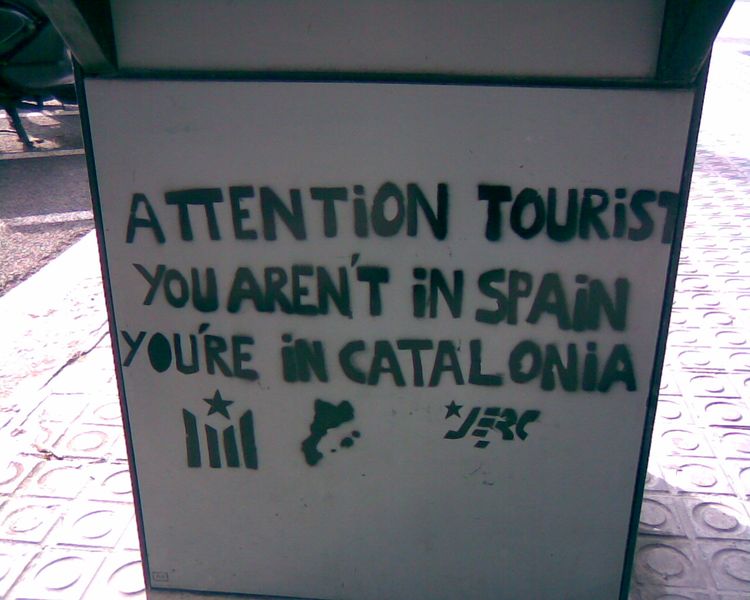 ATTENTION TOURIST
YOU AREN'T IN SPAIN
YOU'RE IN CATALONIA
JERC